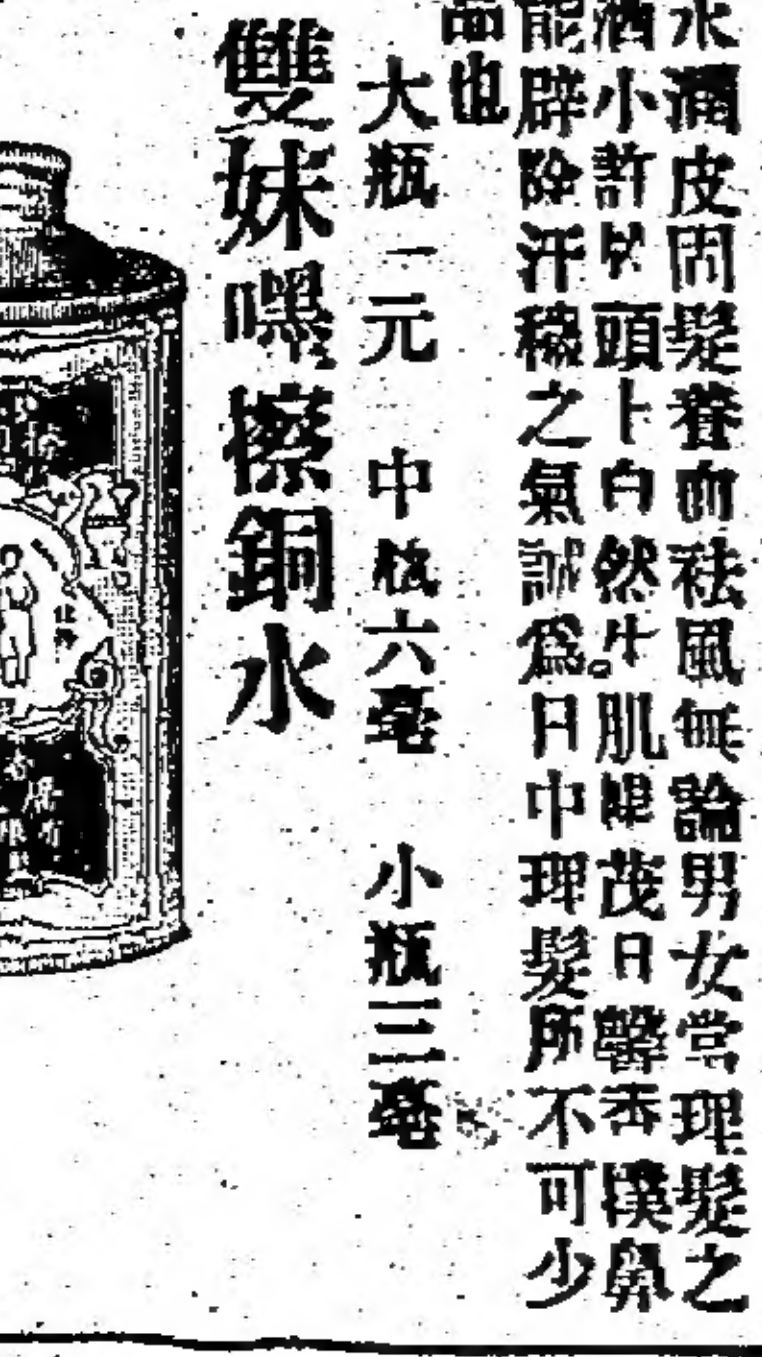 水潤皮固髮養血祛風無論男女當理髮之
洒小許於頭上自然生肌健茂日馨香撲鼻
能辟除汗穢之氣誠爲日中理髮所不可少
品也
大瓶一元 中瓶六毫 小瓶三毫
雙妹嘿擦銅水